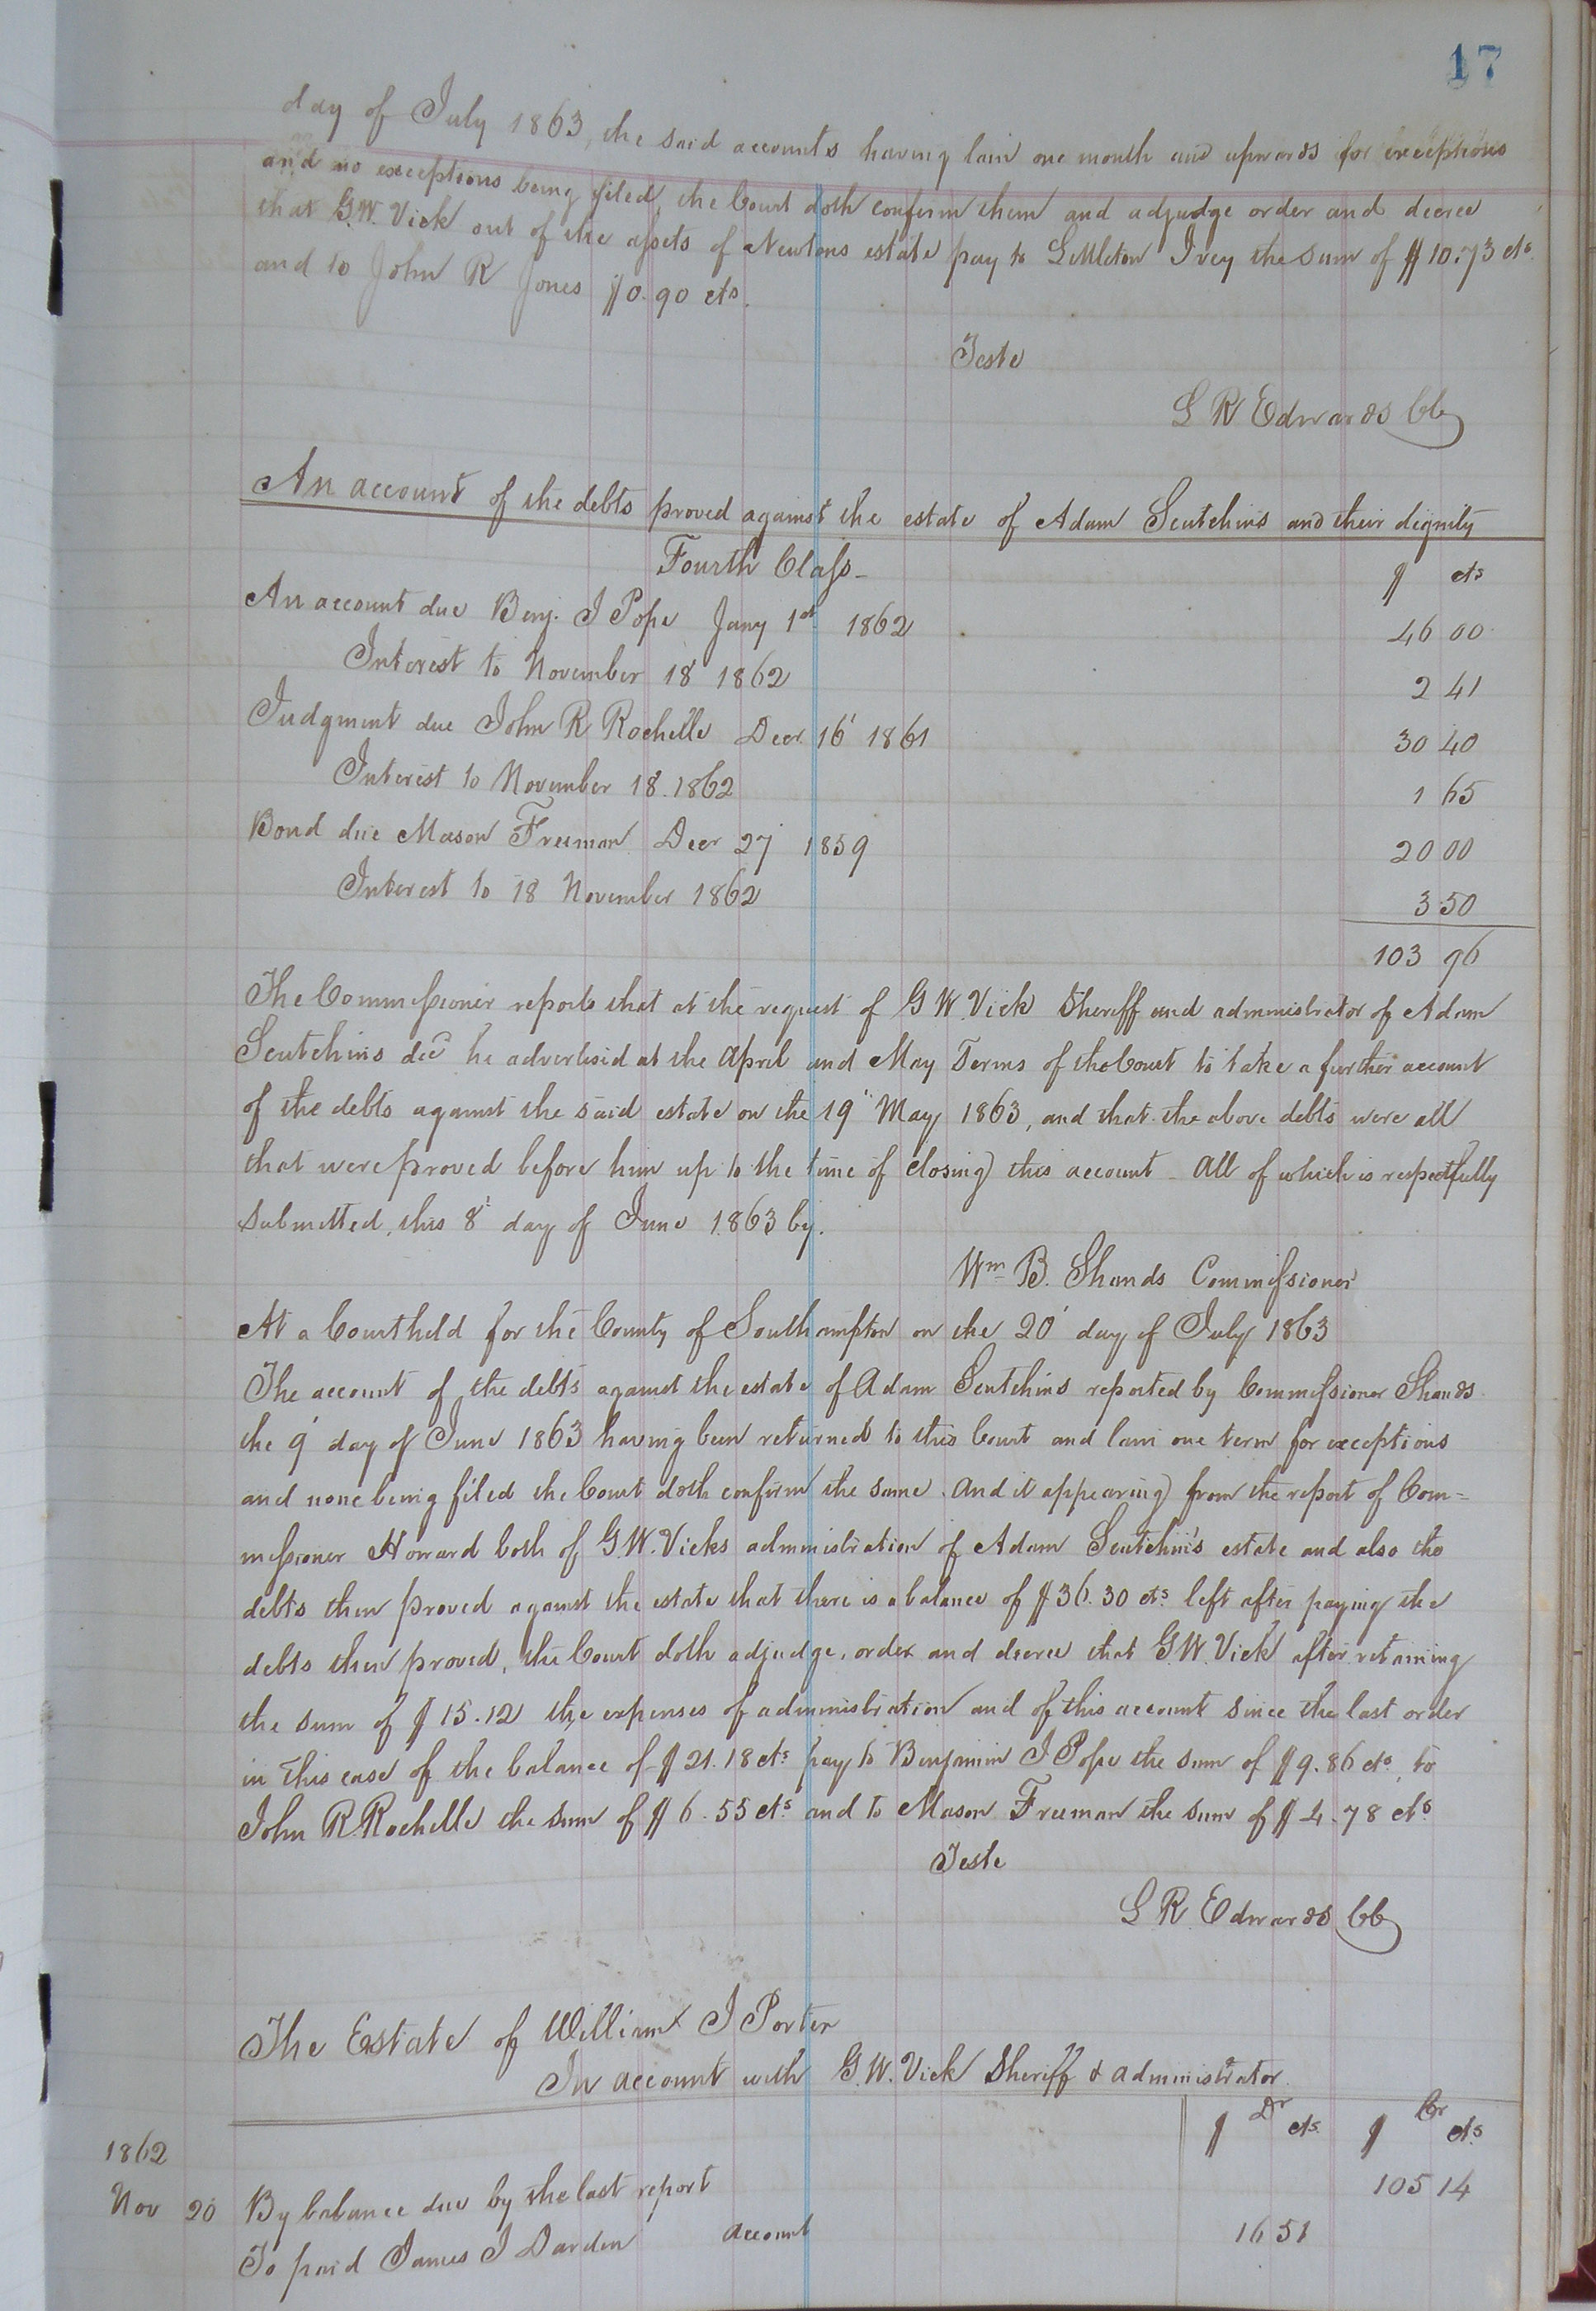 17
day of July 1863, the said accounts having lain one month and upwards for exceptions
and no exceptions being filed, the Court doth confirm them and adjudge order and decree
that G.W. Vick out of the assets of Newtons estate pay to Littleton Ivey the sum of $10.73 cts.
and to John R Jones $0.90 cts.
Teste
L R Edwards CC
An account of the debts proved against the estate of Adam Scutchins and their dignity
Fourth Class
$ cts
An account due Benj. J Pope Jany 1st 1862 46 00
Interest to November 18 1862 2 41
Judgment due John R Rochelle Decr 16' 1861 30 40
Interest to November 18. 1862 1 65
Bond due Mason Freeman Decr 27 1859 20 00
Interest to 18 November 1862 3 50
103 96
The Commissioner reports that at the request of G W. Vick Sheriff and administrator of Adam
Scutchins decd he advertised at the April and May Terms of the Court to take a further account
of the debts against the said estate on the 19" May 1863, and that the above debts were all
that were proved before him up to the time of closing this account - All of which is respectfully
submitted, this 8' day of June 1863 by.
Wm B. Shands Commissioner
At a Court held for the County of Southampton on the 20' day of July 1863
The account of the debts against the estate of Adam Scutchins reported by Commissioner Shands
the 9' day of June 1863 having been returned to this Court and lain one term for exceptions
and none being filed the Court doth confirm the same. And it appearing from the report of Com=
missioner Howard both of G.W. Vicks administration of Adam Scutchin's estate and also the
debts then proved against the estate that there is a balance of $36.30 cts. left after paying the
debts then proved, the Court doth adjudge, order and decree that G.W. Vick after retaining
the sum of $15.12 the expenses of administration and of this account since the last order
in this case of the balance of $21.18 cts. pay to Benjamin J Pope the sum of $9.86 cts, to
John R. Rochelle the sum of $6.55 cts and to Mason Freeman the sum of $4.78 cts
Teste
L R Edwards CC
The Estate of William J Porter
In account with G.W. Vick Sheriff & administrator.
$ Dr cts. $ Cr cts.
1862
Nov 20 By balance due by the last report 105 14
To paid James J Darden account 16 51